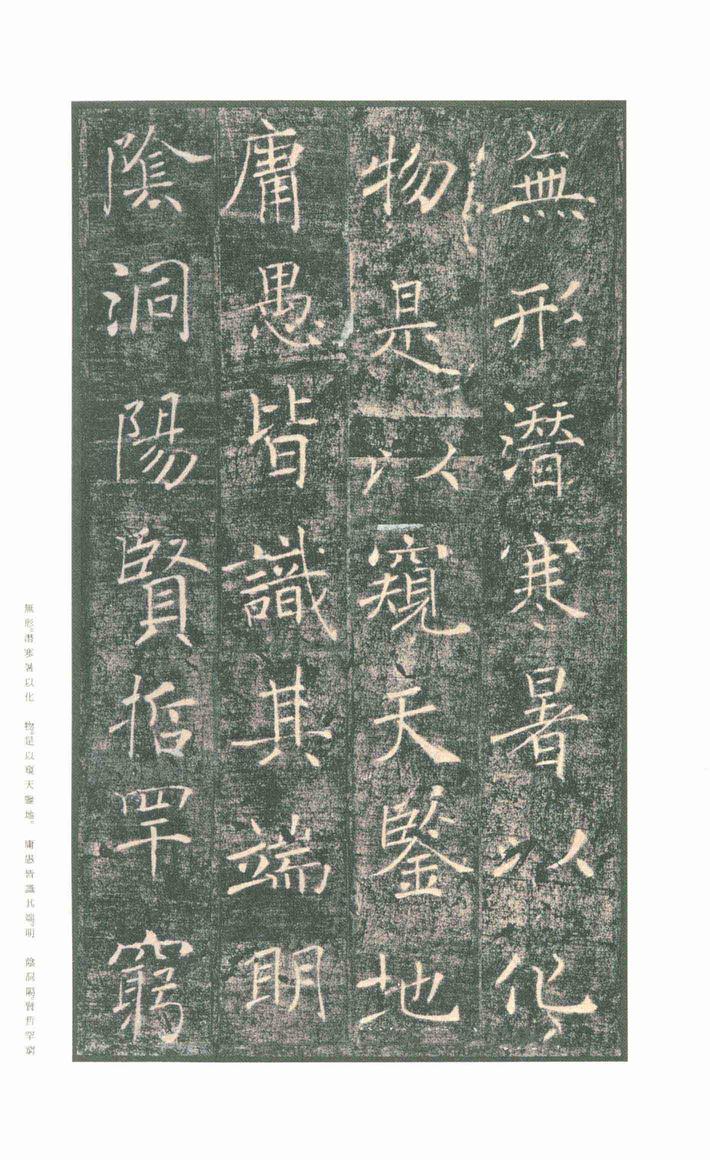 無形潛寒暑以化
物是以窺天鑒地
庸愚皆識其端明
陰洞陽賢哲罕窮
無形。潛寒暑以化　物。是以窺天鑒地。　庸愚皆識其端。明　陰洞陽。賢哲罕窮